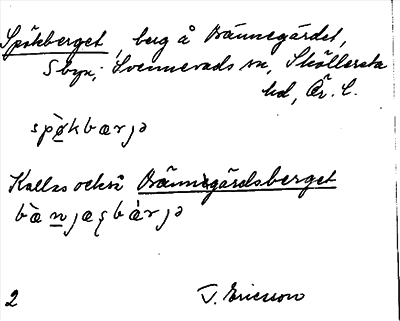 Spökberget, berg å Bännegärdet,
S byn; Svennevads sn, Sköllersta
hd, Ör. l.
spø̀kbærjə
Kallas också Bännegärdsberget
bæ̀njæsbǽrjə
2 T. Ericsson